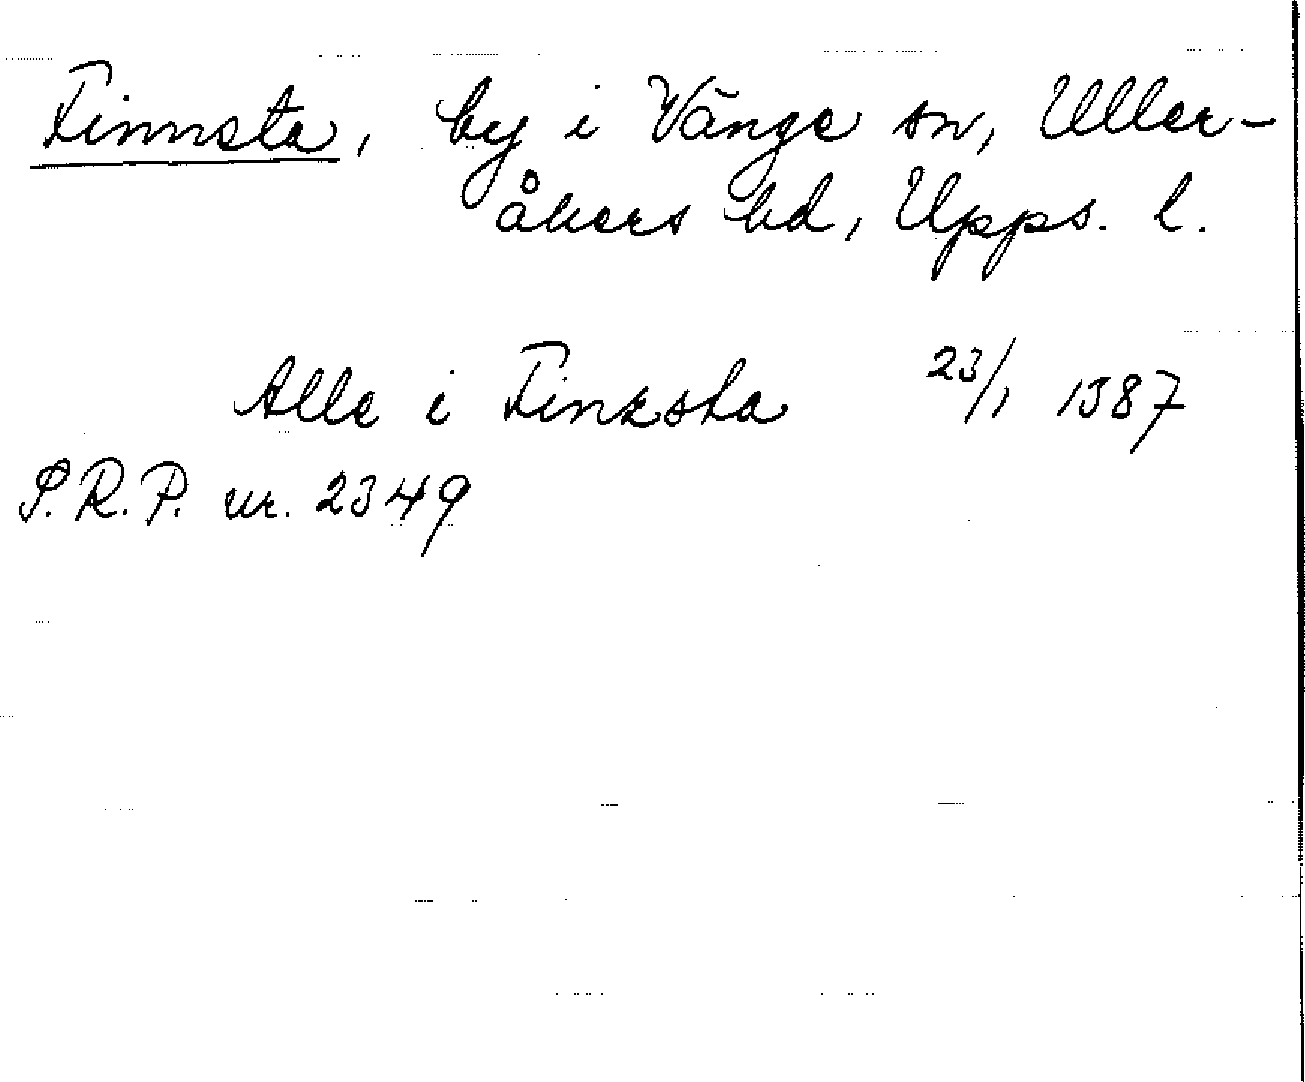 Finnsta, by i Vänge sn, Uller-
åkers hd, Upps. l.
Alle i Finzsta 23/1 1387
S.R.P. nr. 2349